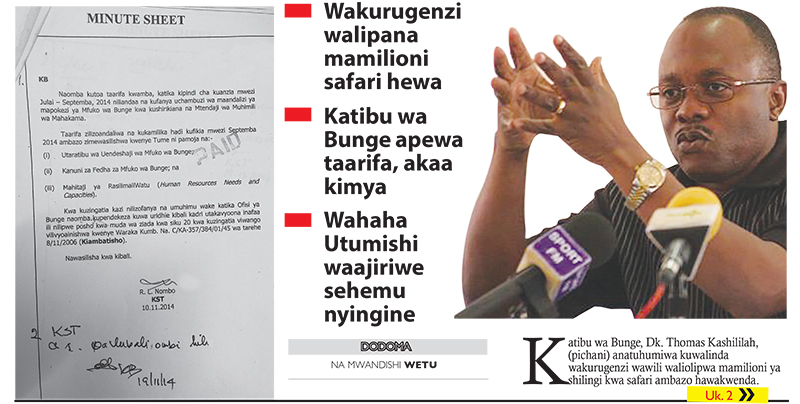 MINUTE SHEET
1. KB
Naomba kutoa taarifa kwamba, katika kipindi cha kuanzia mwezi
Julai – Septemba, 2014 niliandaa na kufanya uchambuzi wa maandalizi ya
mapokezi ya Mfuko wa Bunge kwa kushirikiana na Mtendaji wa Muhimili
wa Mahakama.
Taarifa zilizoandaliwa na kukamilika hadi kufikia mwezi Septemba
2014 ambazo zimewasilishwa kwenye Tume ni pamoja na:-
(i) Utaratibu wa Uendeshaji wa Mfuko wa Bunge;
(ii) Kanuni za Fedha za Mfuko wa Bunge; na
(iii) Mahitaji ya RasilimaliWatu (Human Resources Needs and
Capacities).
PAID
Kwa kuzingatia kazi nilizofanya na umuhimu wake katika Ofisi ya
Bunge naomba,iupendekeza kuwa uridhie kibali kadri utakavyoona inafaa
ili nilipwe posho kwa muda wa ziada kwa siku 20 kwa kuzingatia viwango
vilivyoainishwa kwenye Waraka Kumb. Na. C/KA-357/384/01/45 wa tarehe
8/11/2006 (Kiambatisho).
Nawasilisha kwa kibali.
R. L. Nombo
KST
10.11.2014
2. KST
19/11/14
Wakurugenzi
walipana
mamilioni
safari hewa
Katibu wa
Bunge apewa
taarifa, akaa
kimya
Wahaha
Utumishi
waajiriwe
sehemu
nyingine
DODOMA
NA MWANDISHI WETU
SPORT
FM
Katibu wa Bunge, Dk. Thomas Kashililah,
(pichani) anatuhumiwa kuwalinda
wakurugenzi wawili waliolipwa mamilioni ya
shilingi kwa safari ambazo hawakwenda.
Uk. 2